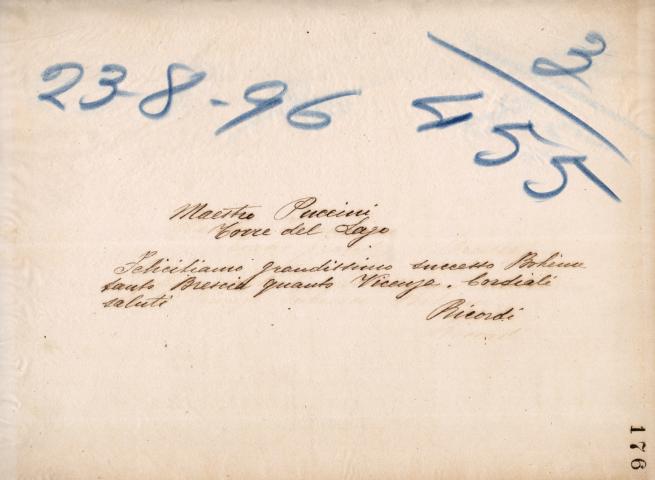 23-8-96
3
555
Maestro Puccini
Torre del Lago
Felicitiamo grandissimo successo Bohème
tanto Brescia quanto Vicenza. Cordiali
saluti
Ricordi
176